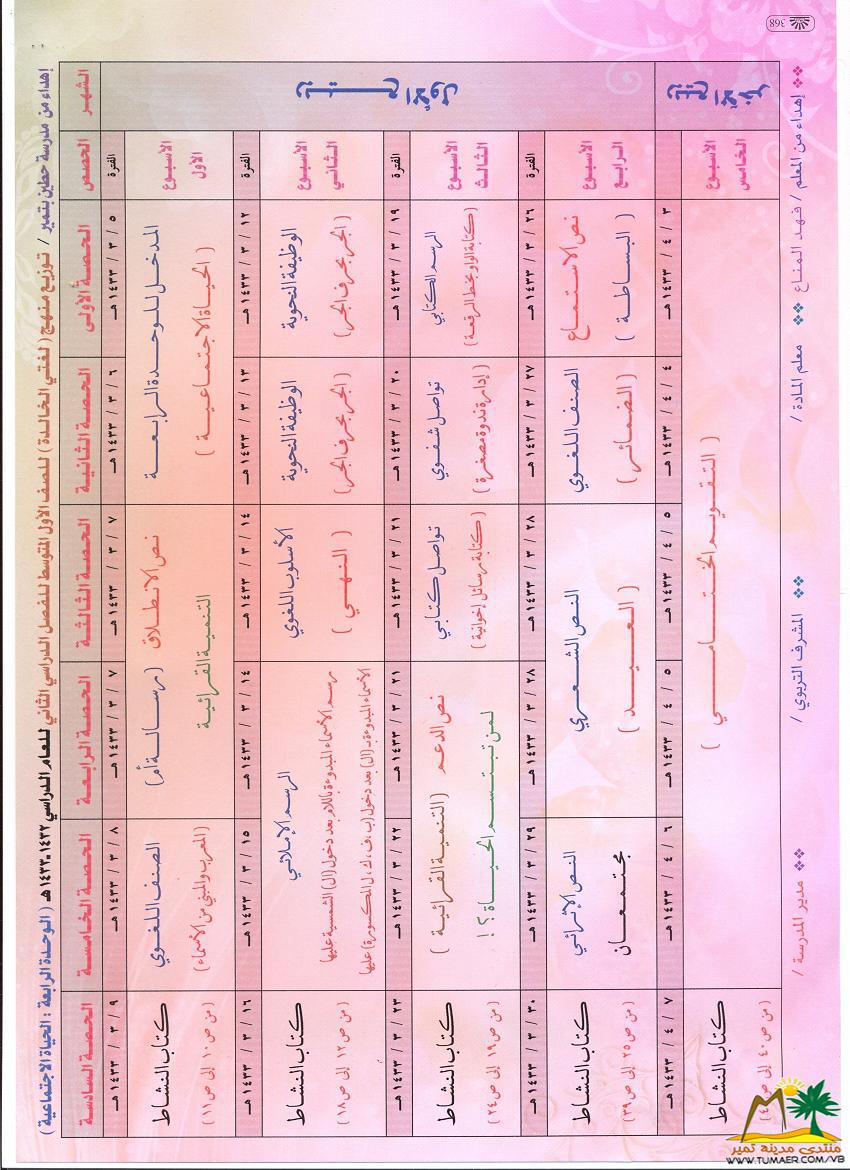 368
إهداء من مدرسة حطين بتمير / توزيع منهج ( لغتي الخالدة ) للصف الأول المتوسط للفصل الدراسي الثاني للعام الدراسي ١٤٣٢-١٤٣٣ هـ ( الوحدة الرابعة : الحياة الاجتماعية )
الشهر
ربيع الأول
ربيع الآخر
الحصص
الحصة الأولى
الحصة الثانية
الحصة الثالثة
الحصة الرابعة
الحصة الخامسة
الحصة السادسة
الفترة
٥ / ٣ / ١٤٣٣ هـ
٦ / ٣ / ١٤٣٣ هـ
٧ / ٣ / ١٤٣٣ هـ
٧ / ٣ / ١٤٣٣ هـ
٨ / ٣ / ١٤٣٣ هـ
٩ / ٣ / ١٤٣٣ هـ
الأسبوع
الأول
المدخل للوحدة الرابعة
( الحياة الاجتماعية )
نص الانطلاق ( رسالة أم )
التنمية القرائية
الصنف اللغوي
( المعرب والمبني من الأسماء )
كتاب النشاط
( من ص ١٠ إلى ص ١١ )
الفترة
١٢ / ٣ / ١٤٣٣ هـ
١٣ / ٣ / ١٤٣٣ هـ
١٤ / ٣ / ١٤٣٣ هـ
١٤ / ٣ / ١٤٣٣ هـ
١٥ / ٣ / ١٤٣٣ هـ
١٦ / ٣ / ١٤٣٣ هـ
الأسبوع
الثاني
الوظيفة النحوية
( الجر بحرف الجر )
الوظيفة النحوية
( الجر بحرف الجر )
الأسلوب اللغوي
( النهي )
الرسم الإملائي
رسم الأسماء المبدوءة باللام بعد دخول (ال) الشمسية عليها
الأسماء المبدوءة بـ(ال) بعد دخول (ب، ف، ك، ل المكسورة) عليها
كتاب النشاط
( من ص ١٢ إلى ص ١٨ )
الفترة
١٩ / ٣ / ١٤٣٣ هـ
٢٠ / ٣ / ١٤٣٣ هـ
٢١ / ٣ / ١٤٣٣ هـ
٢١ / ٣ / ١٤٣٣ هـ
٢٢ / ٣ / ١٤٣٣ هـ
٢٣ / ٣ / ١٤٣٣ هـ
الأسبوع
الثالث
الرسم الكتابي
( كتابة الواو بخط الرقعة )
تواصل شفوي
( إدارة ندوة مصغرة )
تواصل كتابي
( كتابة رسائل إخوانية )
نص الدعم ( التنمية القرائية )
لمن تبتسم الحياة ؟ !
كتاب النشاط
( من ص ١٩ إلى ص ٢٤ )
الفترة
٢٦ / ٣ / ١٤٣٣ هـ
٢٧ / ٣ / ١٤٣٣ هـ
٢٨ / ٣ / ١٤٣٣ هـ
٢٨ / ٣ / ١٤٣٣ هـ
٢٩ / ٣ / ١٤٣٣ هـ
٣٠ / ٣ / ١٤٣٣ هـ
الأسبوع
الرابع
نص الاستماع
( البساطة )
الصنف اللغوي
( الضمائر )
النص الشعري
( العيد )
النص الإثرائي
مجتمعان
كتاب النشاط
( من ص ٢٥ إلى ص ٣٩ )
الفترة
٣ / ٤ / ١٤٣٣ هـ
٤ / ٤ / ١٤٣٣ هـ
٥ / ٤ / ١٤٣٣ هـ
٥ / ٤ / ١٤٣٣ هـ
٦ / ٤ / ١٤٣٣ هـ
٧ / ٤ / ١٤٣٣ هـ
الأسبوع
الخامس
( التقويم الختامي )
كتاب النشاط
( من ص ٤٠ إلى ص
إهداء من المعلم / فهد المناع
معلم المادة /
المشرف التربوي /
مدير المدرسة /
منتدى مدينة تمير
WWW.TUMAER.COM/VB